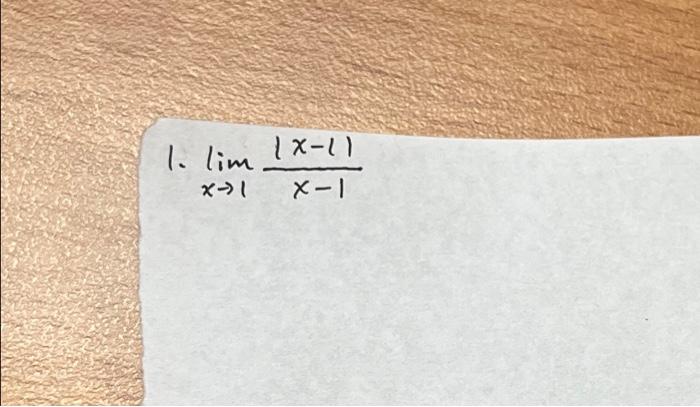 1. lim |x-1|
x→1 x-1